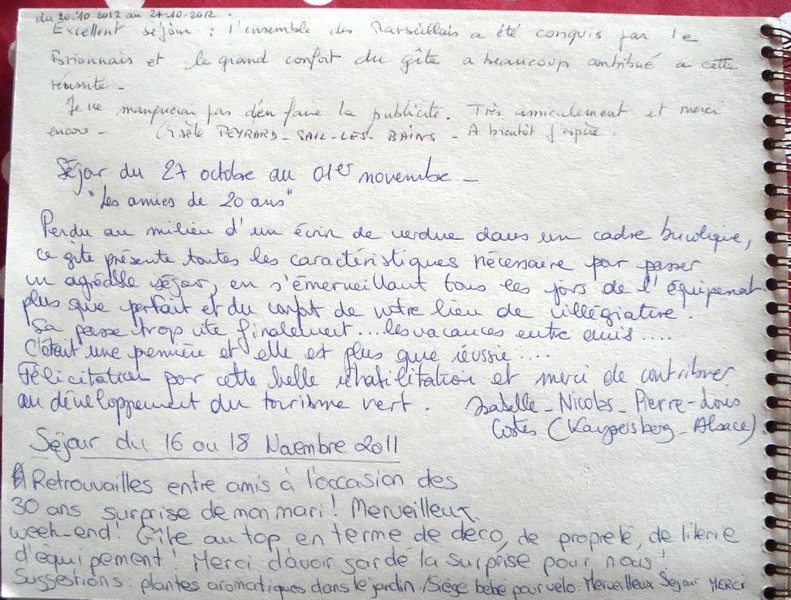 du 20.10.2012 au 27.10.2012.
Excellent séjour : l'ensemble des Marseillais a été conquis par le
Brionnais et le grand confort du gîte a beaucoup contribué a cette
réussite -
Je ne manquerai pas d'en faire la publicité. Très amicalement et merci
encore - Gisèle PEYRARD - SAIL-LES-BAINS - A bientôt j'espère.
Séjour du 27 octobre au 01er novembre -
"Les amies de 20 ans"
Perdu au milieu d'un écrin de verdure dans un cadre bucolique,
ce gîte présente toutes les caractéristiques nécessaire pour passer
un agréable séjour, en s'émerveillant tous les jours de l'équipement
plus que parfait et du confort de votre lieu de villégiature.
Sa passe trop vite finalement... les vacances entre amis....
C'était une première et elle est plus que réussie....
Félicitation pour cette belle réhabilitation et merci de contribuer
au développement du tourisme vert. Isabelle - Nicolas - Pierre-Louis
Costes (Kaysersberg - Alsace)
Séjour du 16 au 18 Novembre 2011
Retrouvailles entre amis à l'occasion des
30 ans surprise de mon mari ! Merveilleux
week-end ! Gîte au top en terme de deco, de propreté, de literie
d'équipement ! Merci d'avoir gardé la surprise pour nous !
Suggestions : plantes aromatiques dans le jardin / Siège bébé pour velo. Merveilleux Sejour MERCI